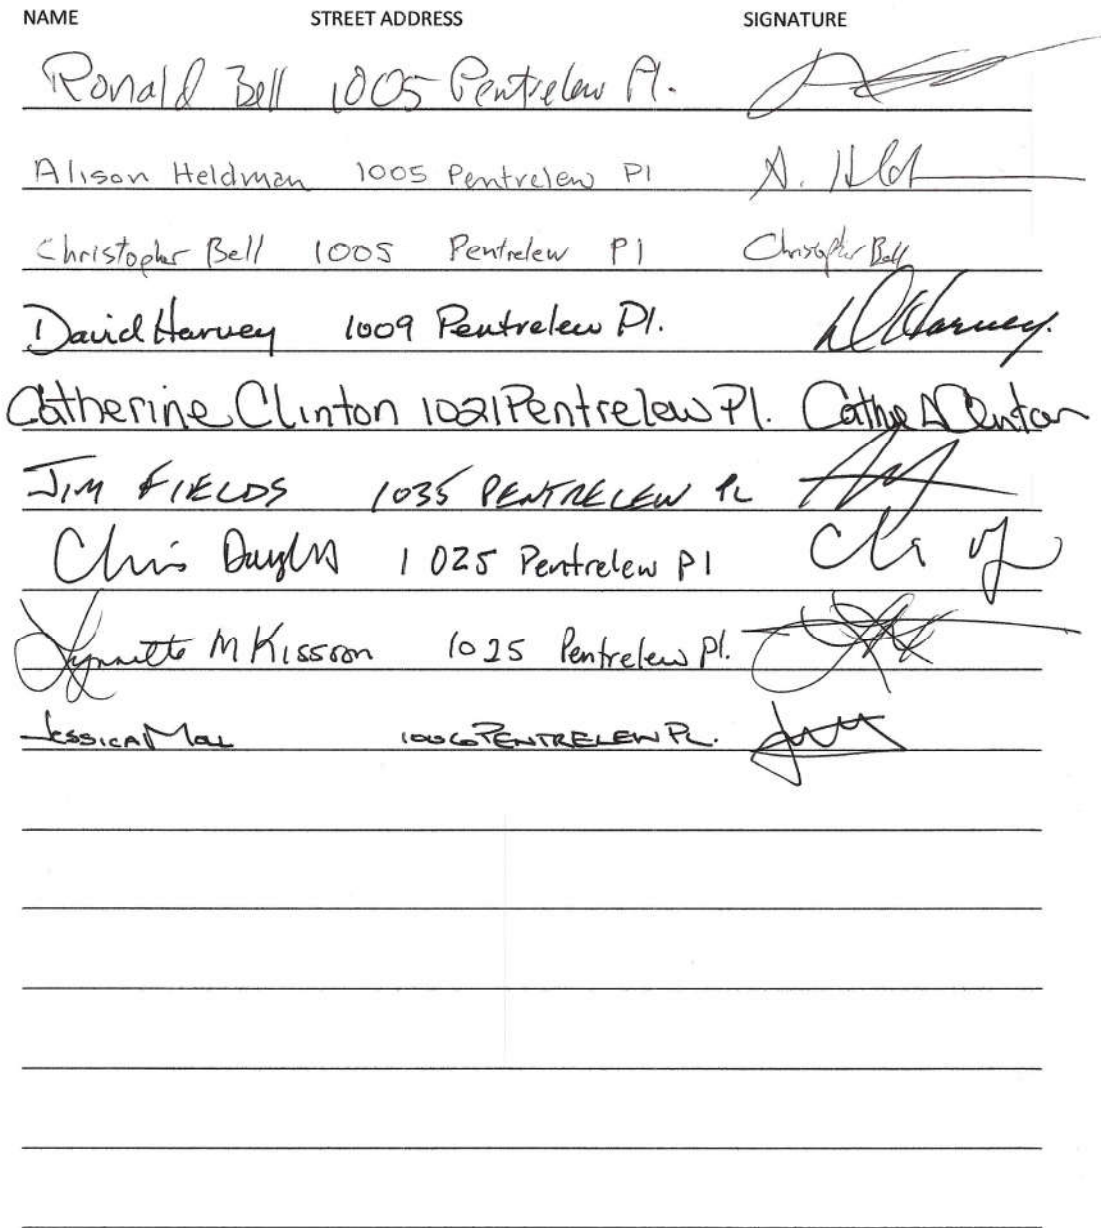 NAME STREET ADDRESS SIGNATURE
Ronald Bell 1005 Pentrelew Pl.
Alison Heldman 1005 Pentrelew Pl A. Held
Christopher Bell 1005 Pentrelew Pl Christopher Bell
David Harvey 1009 Pentrelew Pl. D Harvey.
Catherine Clinton 1021 Pentrelew Pl. Cathe Clinton
JIM FIELDS 1035 PENTRELEW PL
Chris 1025 Pentrelew Pl
Lynnette M Kissoon 1025 Pentrelew Pl.
JESSICA 1006 PENTRELEW PL.